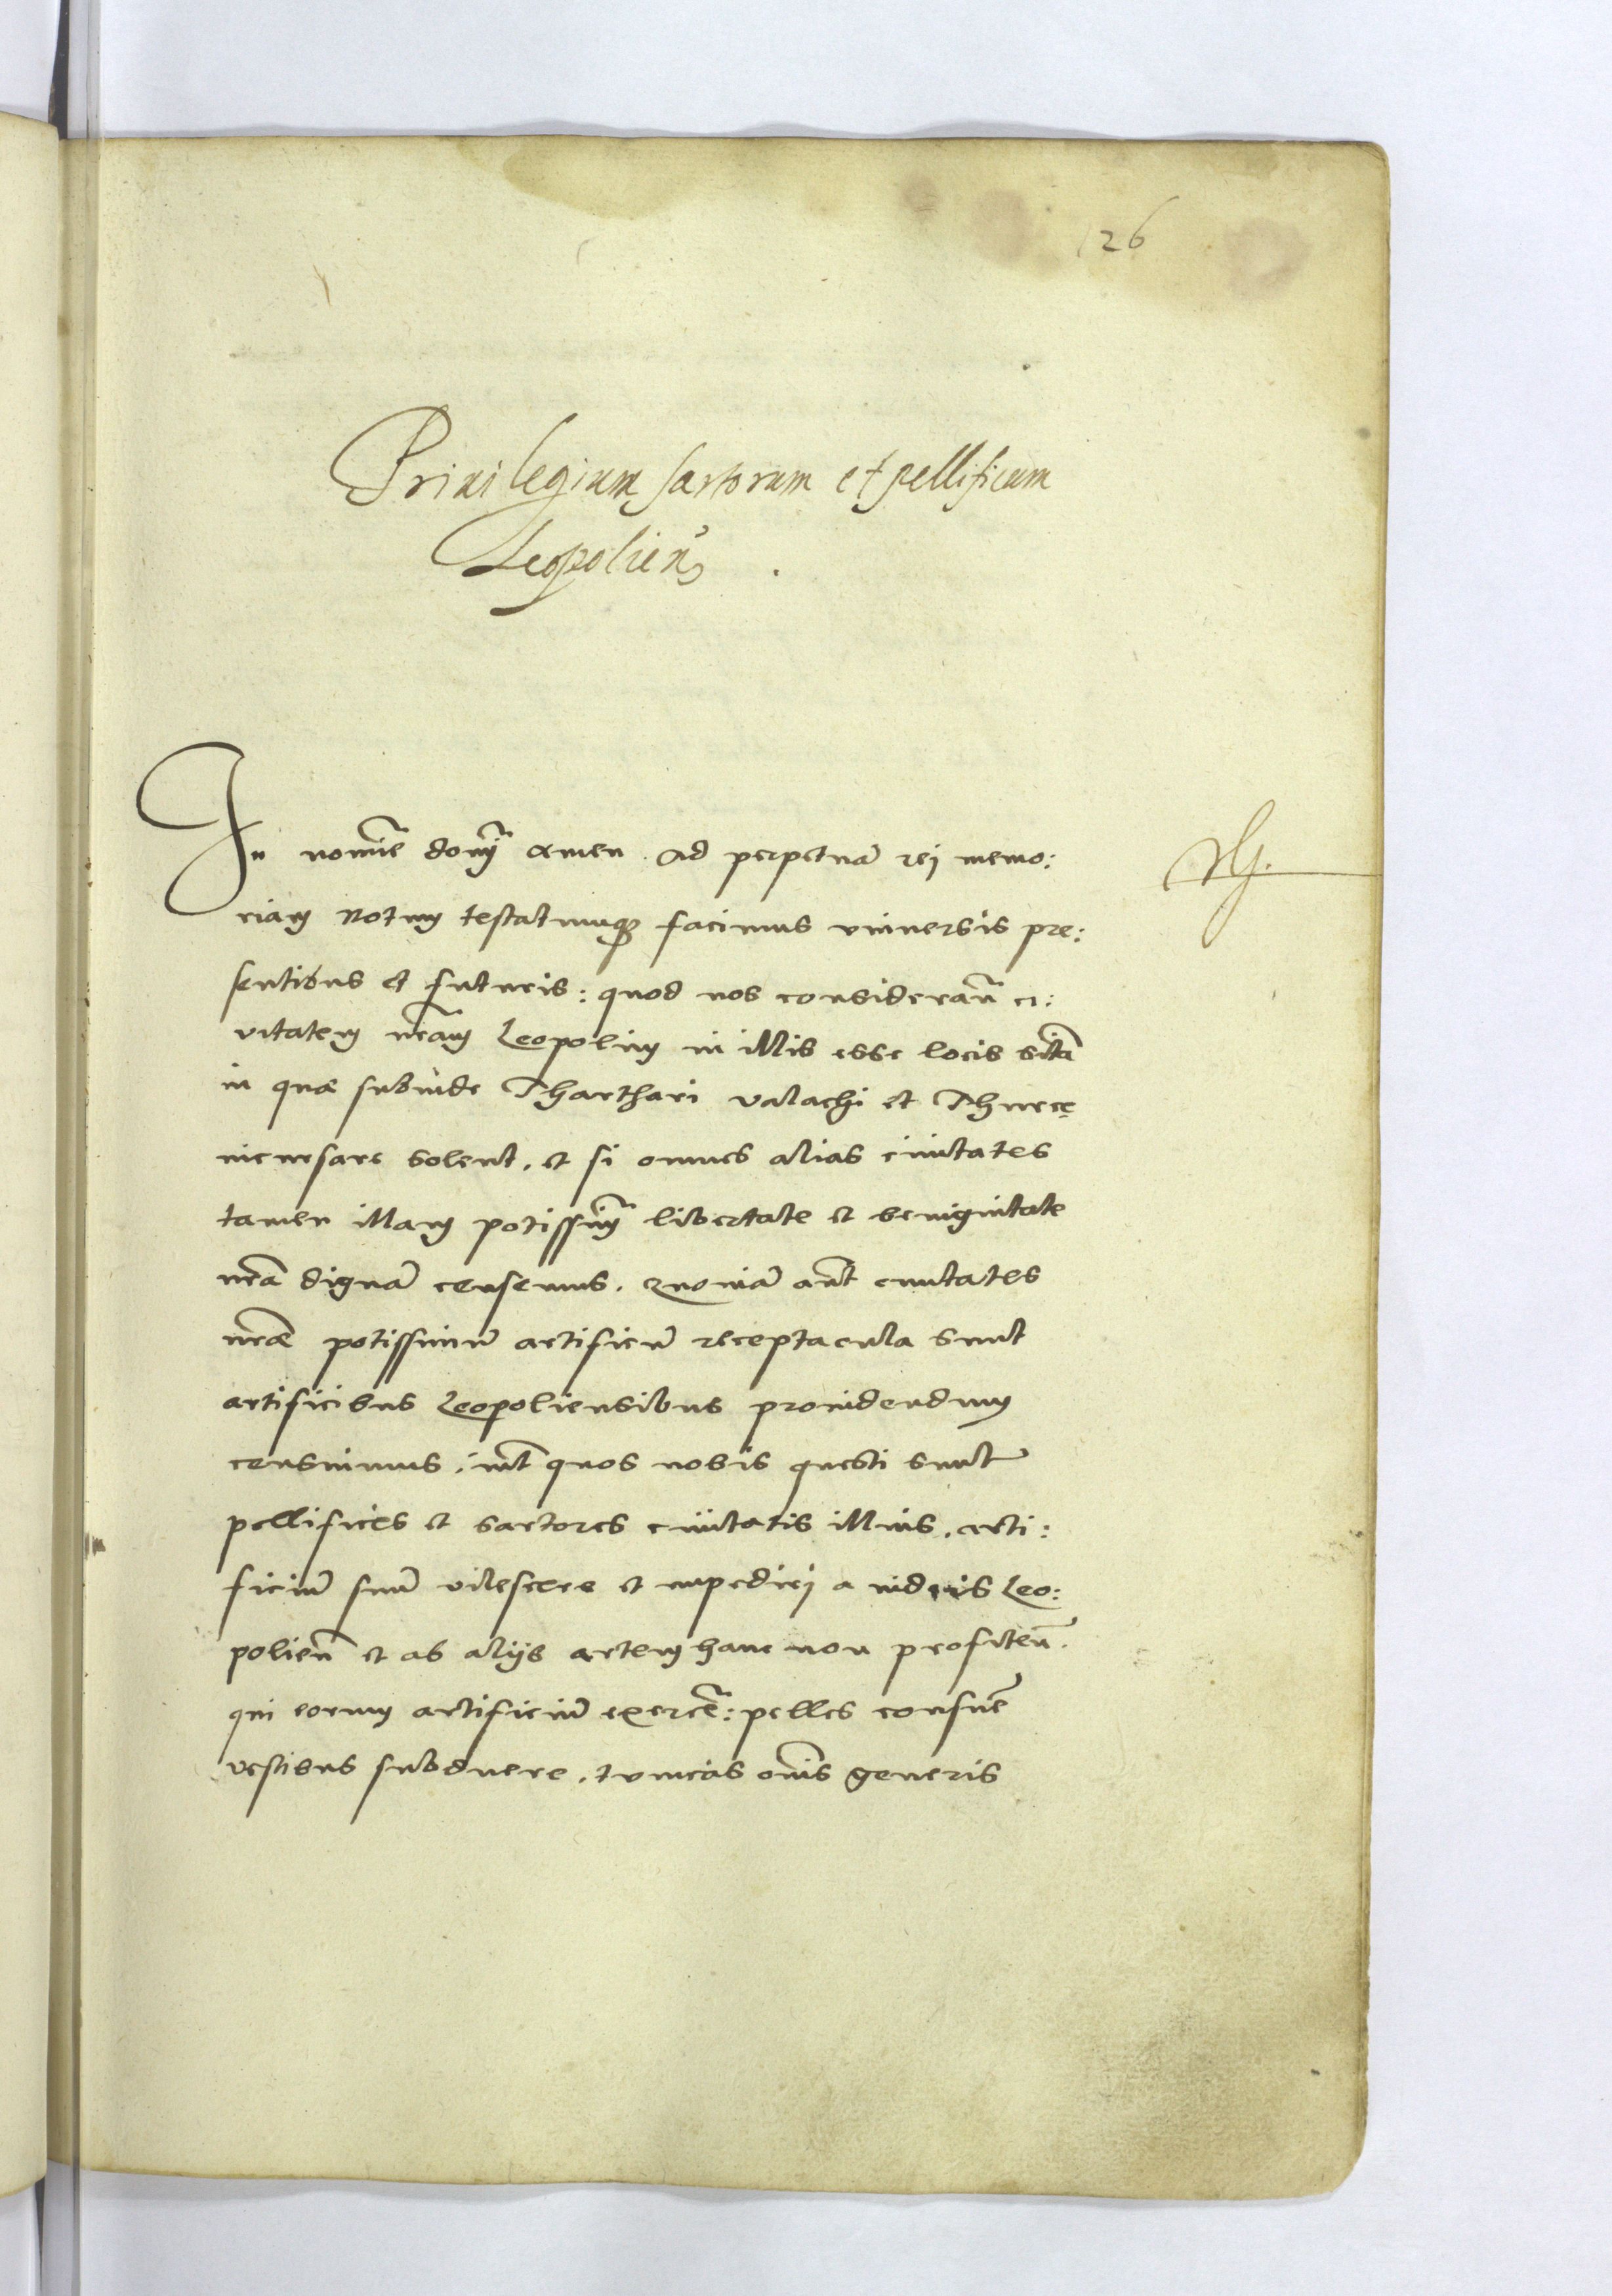 126
Priuilegium sartorum et pellificum
Leopolien̄
In nomīe domī amen. Ad perpetuā rej memo:
riam Notum testatumqꝫ facimus vniuersis pre:
sentibus et futuris: quod nos considerañ ci:
vitatem nr̄am Leopolim in illis esse locis sitā
in quæ subinde Tharthari valachi et Thurcę
incursare solent. et si omnes alias ciuitates
tamen illam potissimū libertate et benignitate
nr̄a dignā censemus. Quoniā aūt ciuitates
nr̄æ potissimū artificū receptacula sunt
artificibus Leopoliensibus prouidendum
censuimus. int̄ quos nobis questi sunt
pellifices et sartores ciuitatis illius. arti:
ficiū suū vilescere et impedirj a iudeis Leo:
polien̄ et ab alijs artem hanc non profiten̄.
qui eorum artificiū exercēt: pelles consuūt
vestibus subduere. tunicas om̄is generis